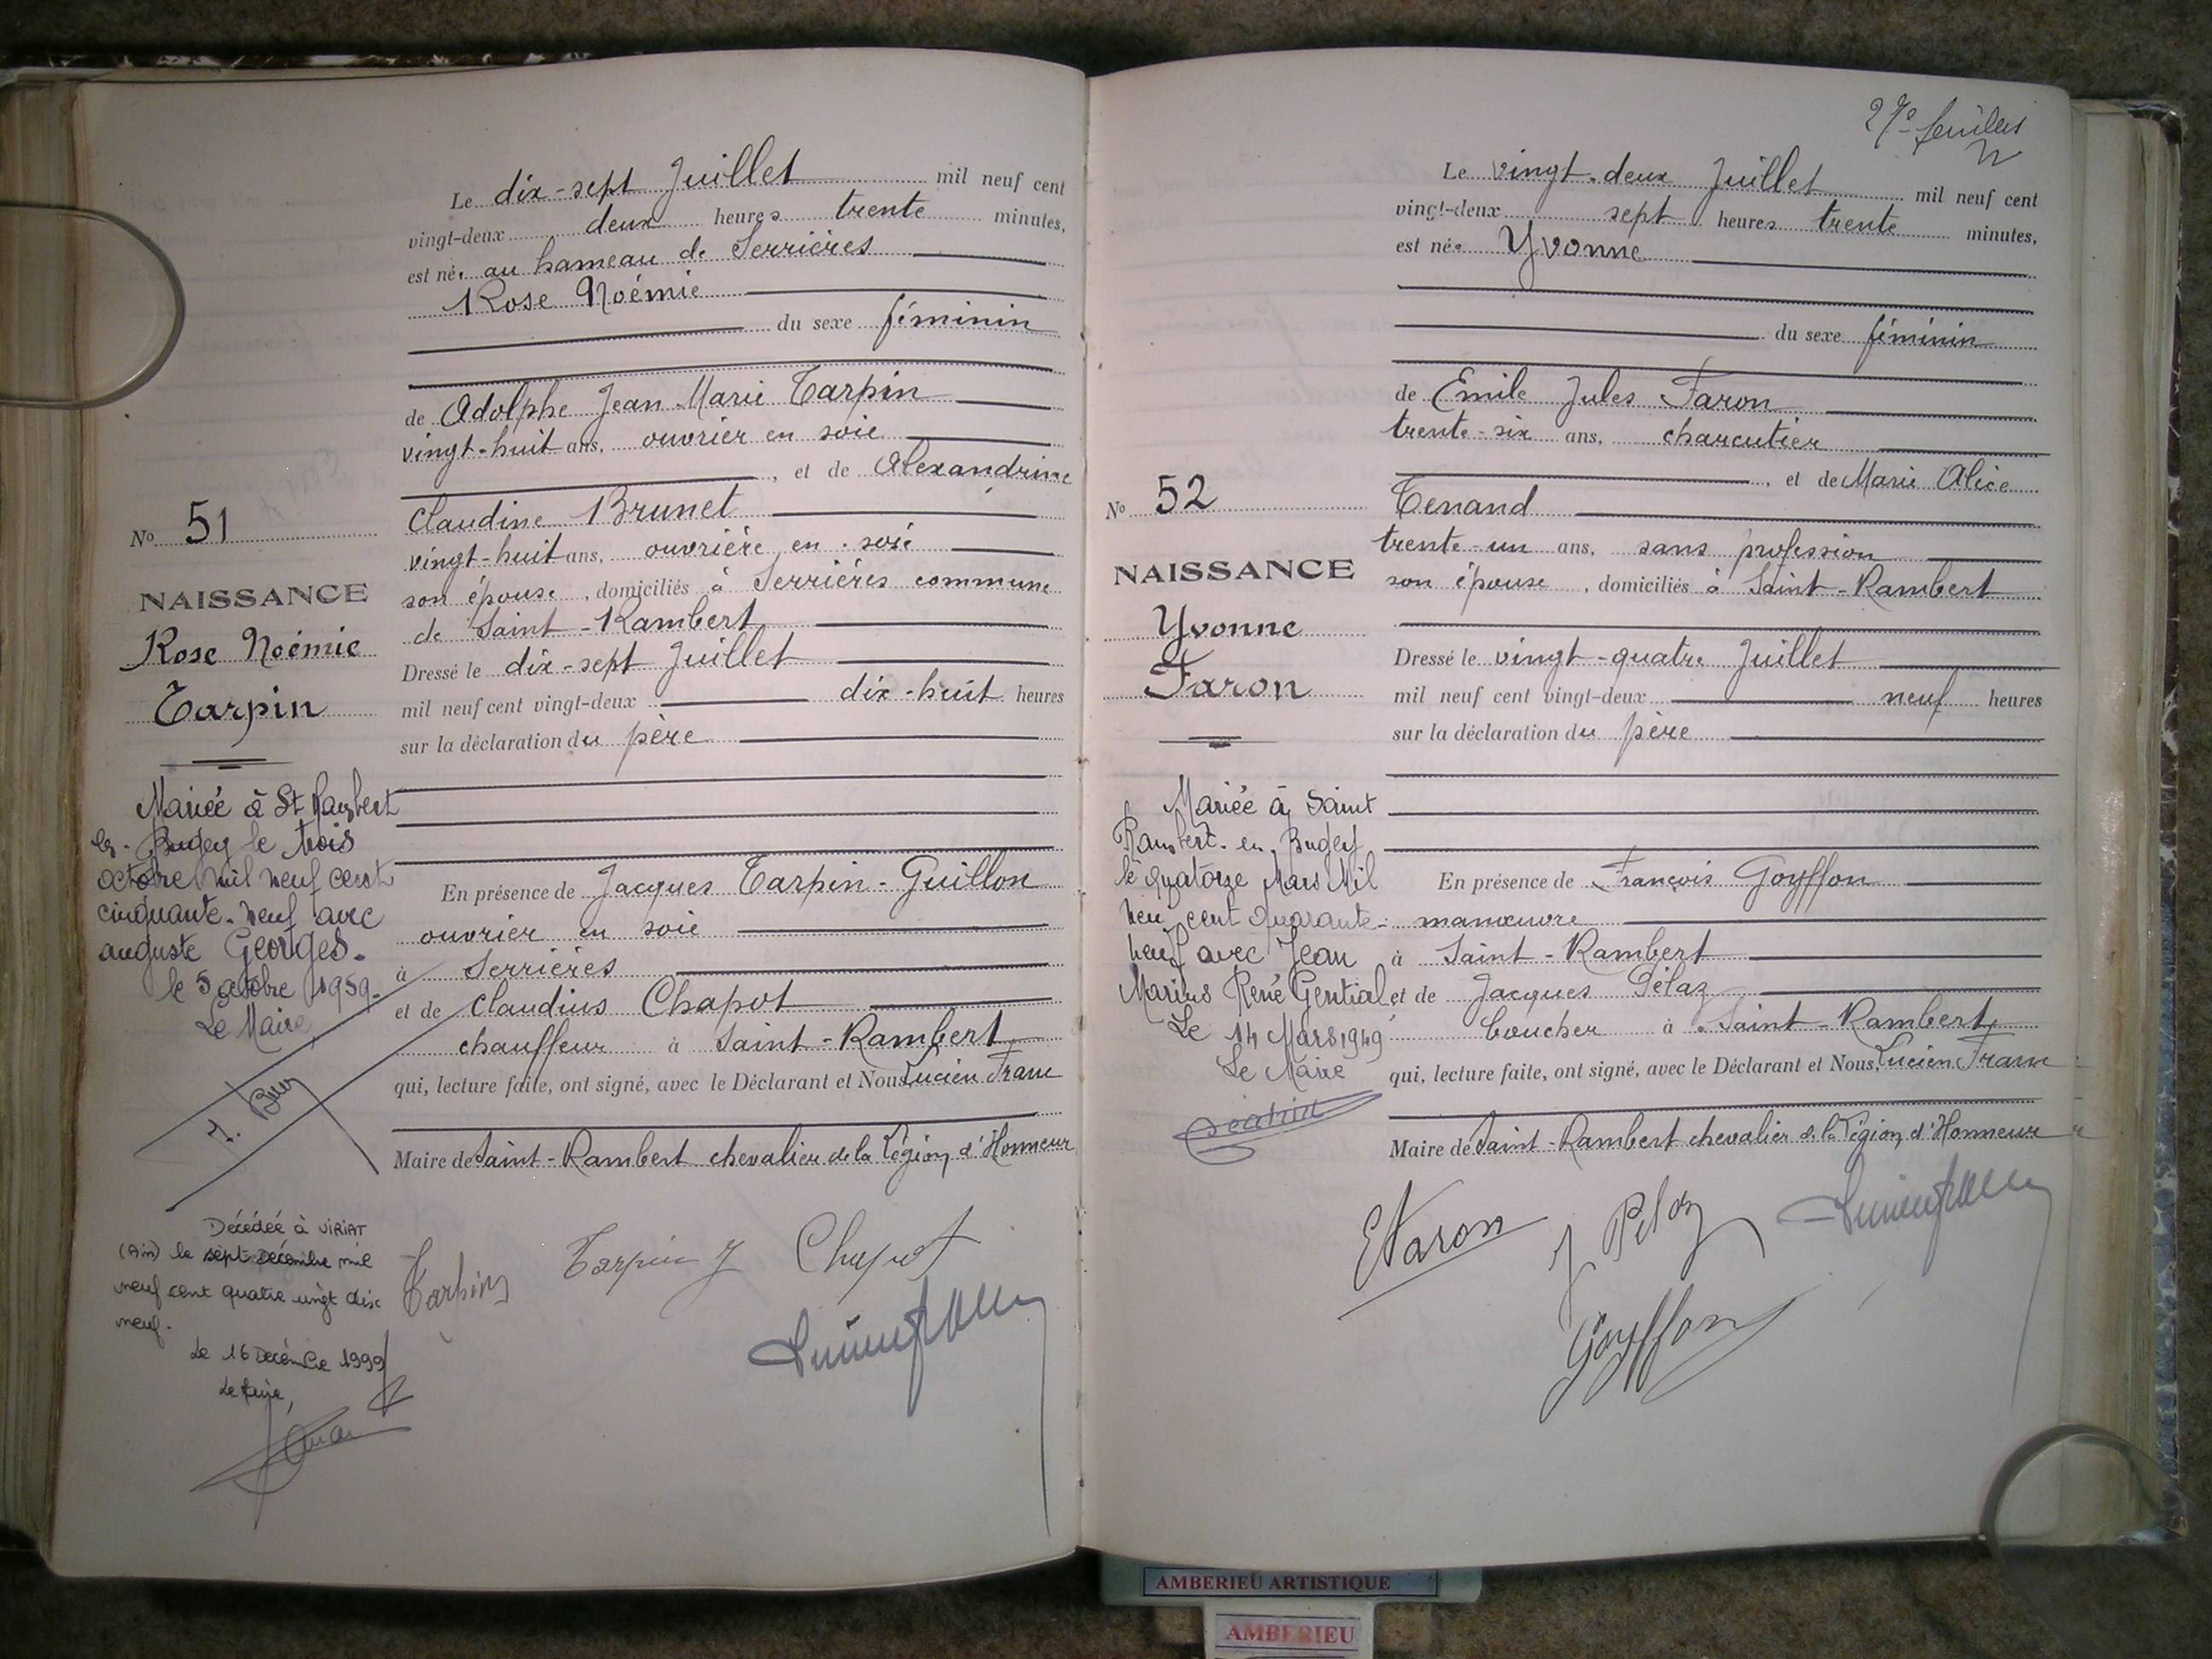 Le dix-sept Juillet mil neuf cent
vingt-deux deux heures trente minutes,
est née au hameau de Serrières
Rose Noémie
du sexe féminin
de Adolphe Jean Marie Tarpin
vingt-huit ans, ouvrier en soie
, et de Alexandrine
Claudine Brunet
vingt-huit ans, ouvrière en soie
son épouse, domiciliés à Serrières commune
de Saint-Rambert
Dressé le dix-sept Juillet
mil neuf cent vingt-deux dix-huit heures
sur la déclaration du père
En présence de Jacques Tarpin-Guillon
ouvrier en soie
à Serrières
et de Claudius Chapot
chauffeur à Saint-Rambert
qui, lecture faite, ont signé, avec le Déclarant et Nous Lucien Franc
Maire de Saint-Rambert chevalier de la Légion d'Honneur
Tarpin Tarpin J Chapot
No 51
NAISSANCE
Rose Noémie
Tarpin
Mariée à St Rambert
en Bugey le trois
octobre mil neuf cent
cinquante-neuf avec
auguste Georges.
le 5 octobre 1959.
Le Maire,
Décédée à VIRIAT
(Ain) le sept décembre mil
neuf cent quatre vingt dix
neuf.
Le 16 Décembre 1999
27e feuillet
Le vingt-deux Juillet mil neuf cent
vingt-deux sept heures trente minutes,
est née Yvonne
du sexe féminin
de Emile Jules Faron
trente-six ans, charcutier
, et de Marie Alice
Tenand
trente-un ans, sans profession
son épouse, domiciliés à Saint-Rambert
Dressé le vingt-quatre Juillet
mil neuf cent vingt-deux neuf heures
sur la déclaration du père
En présence de François Goyffon
manœuvre
à Saint-Rambert
et de Jacques Pélaz
boucher à Saint-Rambert
qui, lecture faite, ont signé, avec le Déclarant et Nous, Lucien Franc
Maire de Saint-Rambert chevalier de la Légion d'Honneur
EFaron J Pelaz
Goyffon
No 52
NAISSANCE
Yvonne
Faron
Mariée à Saint
Rambert-en-Bugey
le quatorze Mars Mil
neuf cent quarante-
neuf avec Jean
Marius René Gential
Le 14 Mars 1949
Le Maire
AMBERIEU ARTISTIQUE
AMBERIEU